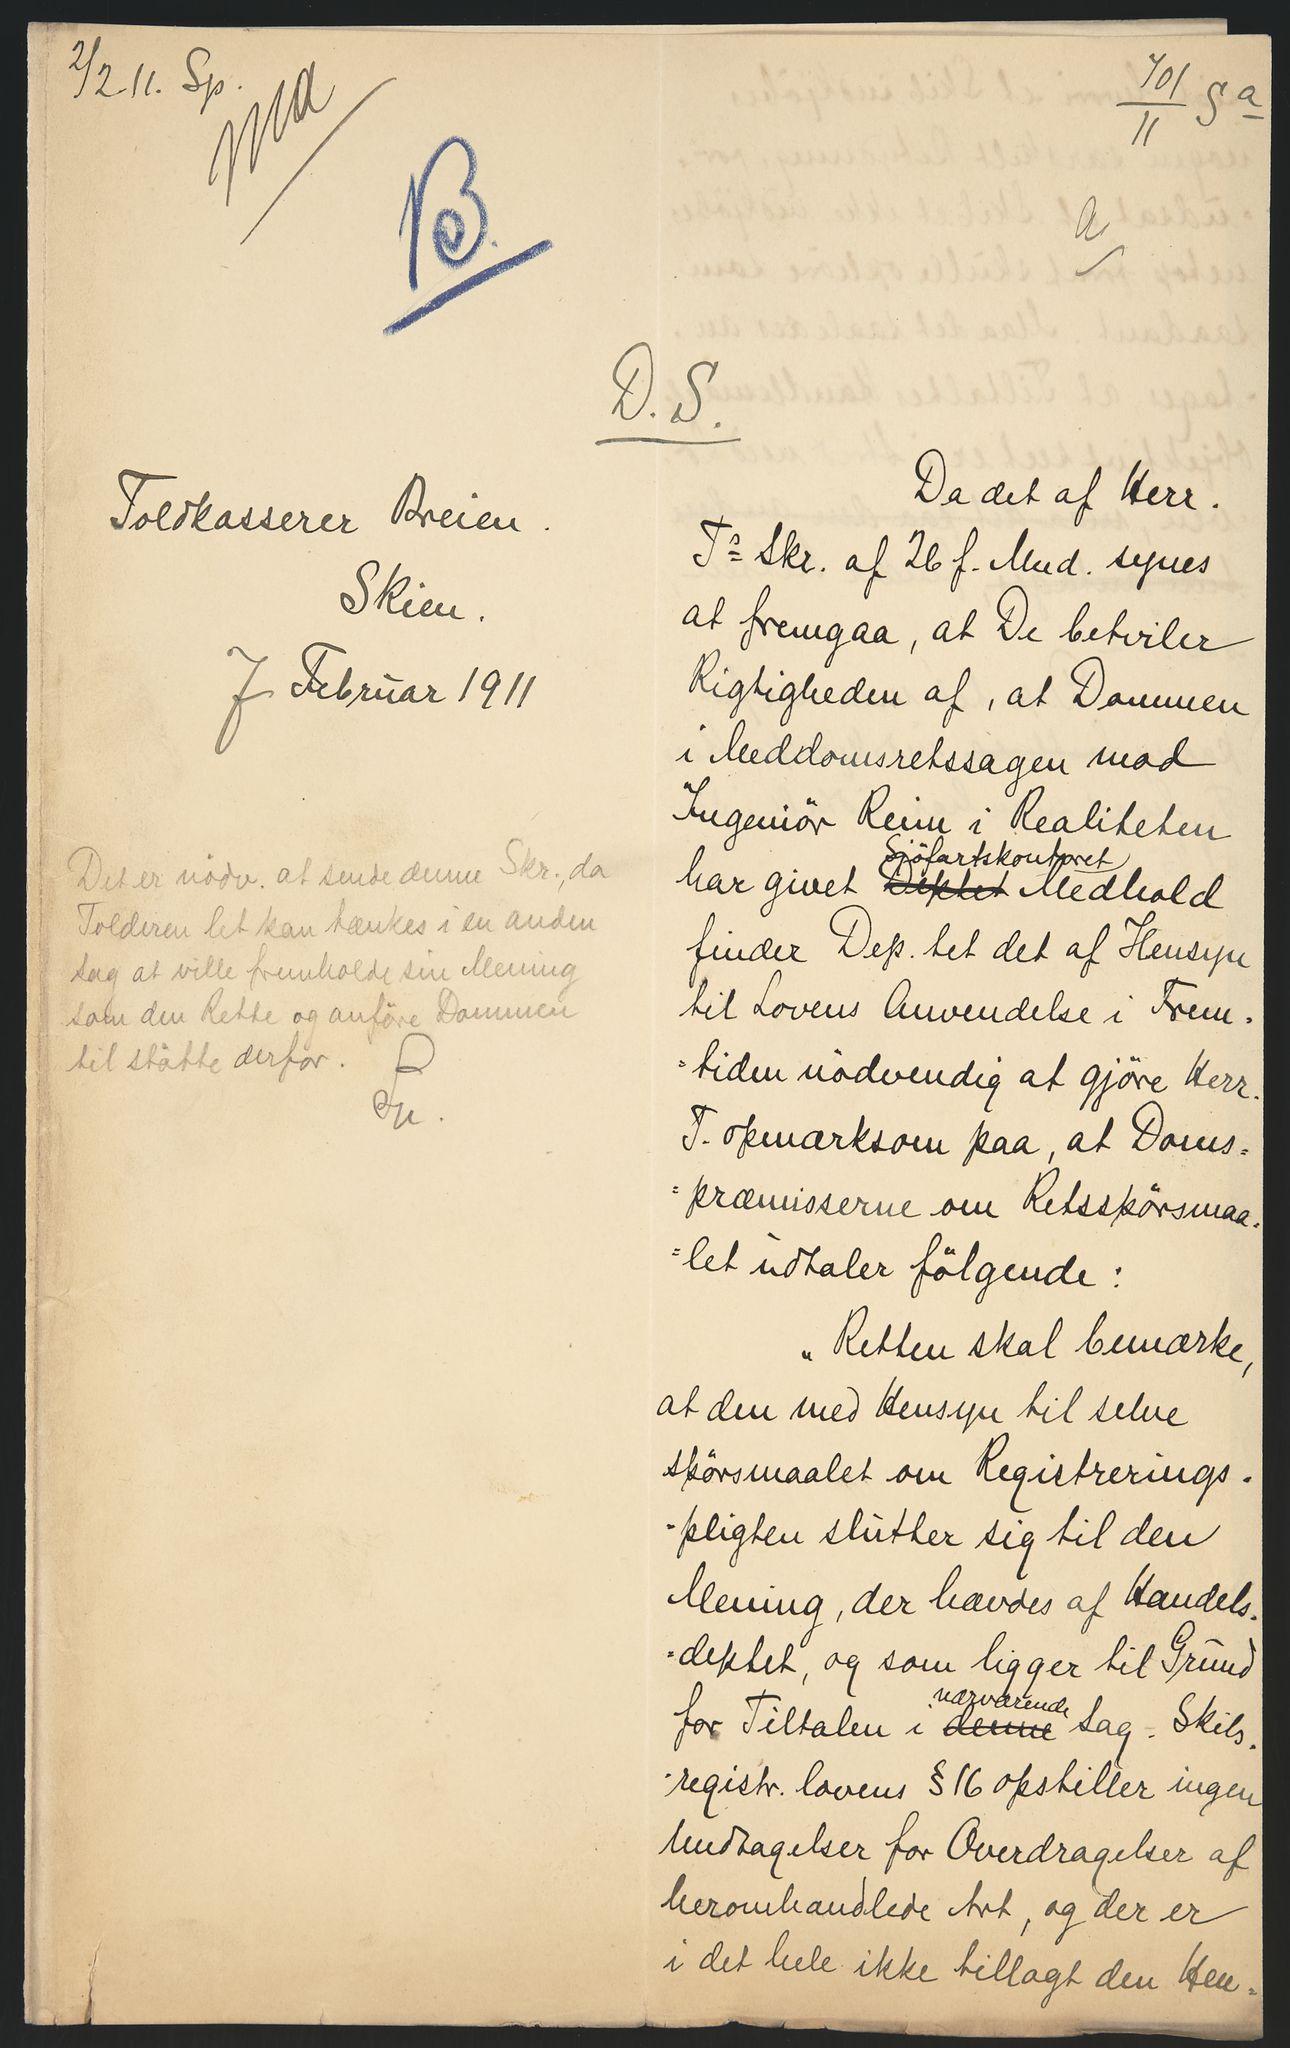 2/2 11. Sp.
701/11 S a
B.
a
D. S.
Toldkasserer Breien.
Skien.
7 Februar 1911
Det er nödv. at sende denne Skr., da
Tolderen let kan tænkes i en anden
Sag at ville fremholde sin Mening
som den Rette og anföre Dommen
til stötte derfor.
Sp.
Da det af Herr.
Ts Skr. af 26 f. Mnd. synes
at fremgaa, at De betviler
Rigtigheden af, at Dommen
i Meddomsretssagen mod
Ingeniör Reim i Realiteten
Sjöfartskontoret
har givet Deptet Medhold
finder Dep.tet det af Hensyn
til Lovens Anvendelse i Frem-
=tiden nödvendig at gjöre Herr.
T. opmærksom paa, at Doms=
=præmisserne om Retsspörsmaa=
=let udtaler fölgende:
„Retten skal bemærke,
at den med Hensyn til selve
spörsmaalet om Registrerings-
-pligten slutter sig til den
Mening, der hævdes af Handels-
=deptet, og som ligger til Grund
nærværende
for Tiltalen i denne Sag. Skibs-
-registr. lovens § 16 opstiller ingen
Undtagelser for Overdragelser af
heromhandlede Art, og der er
i det hele ikke tillagt den Hen=